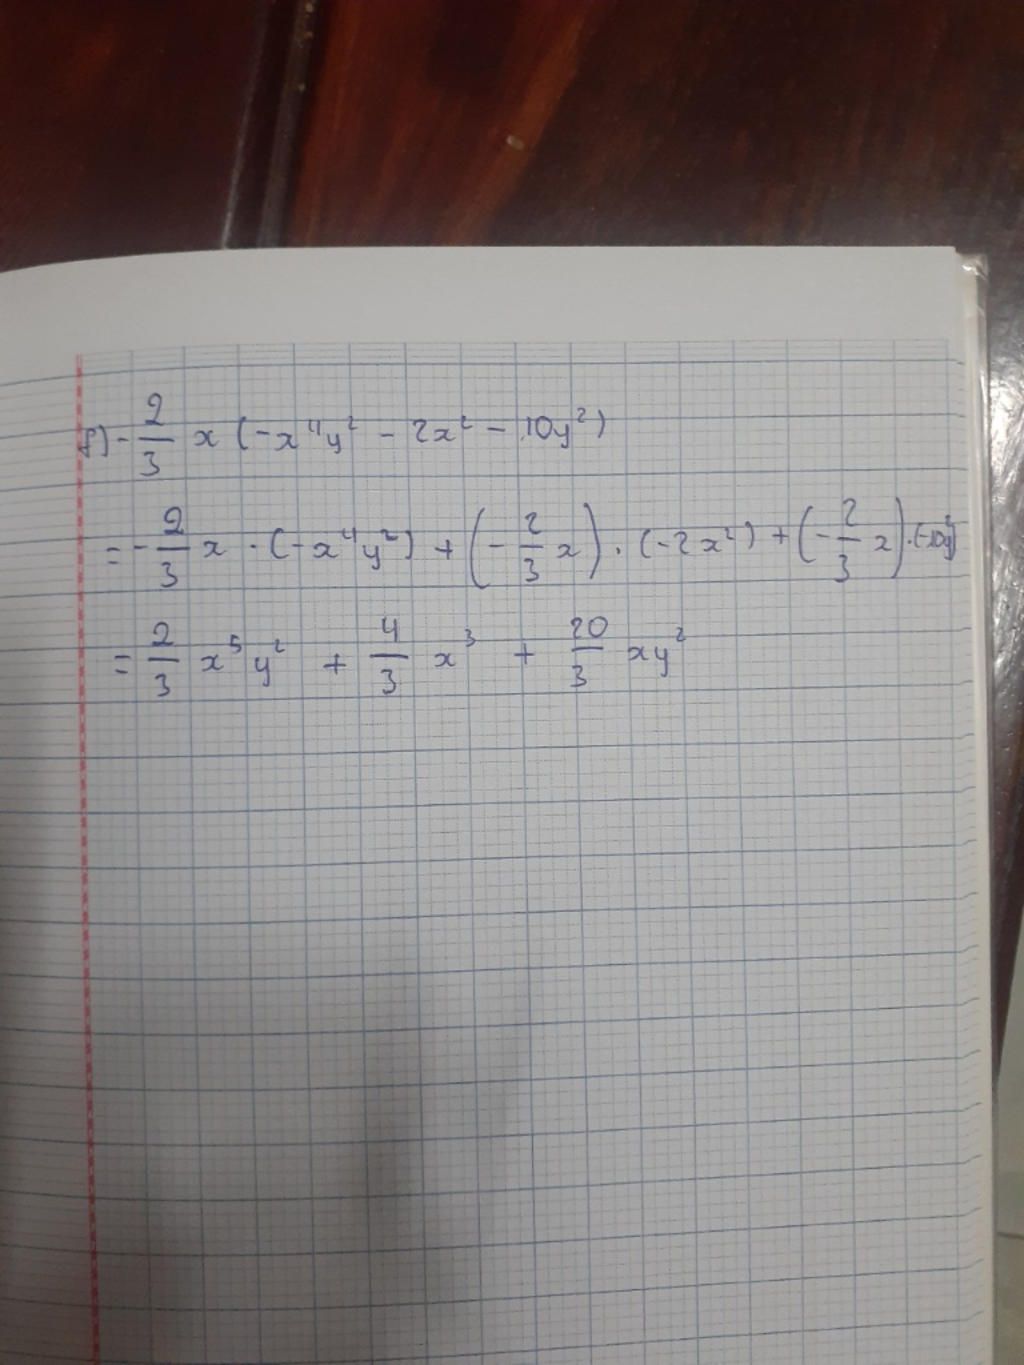 f) -2/3 x (-x⁴y² - 2x² - 10y²)
= -2/3 x · (-x⁴y²) + (-2/3 x) · (-2x²) + (-2/3 x) · (-10y²)
= 2/3 x⁵y² + 4/3 x³ + 20/3 xy²